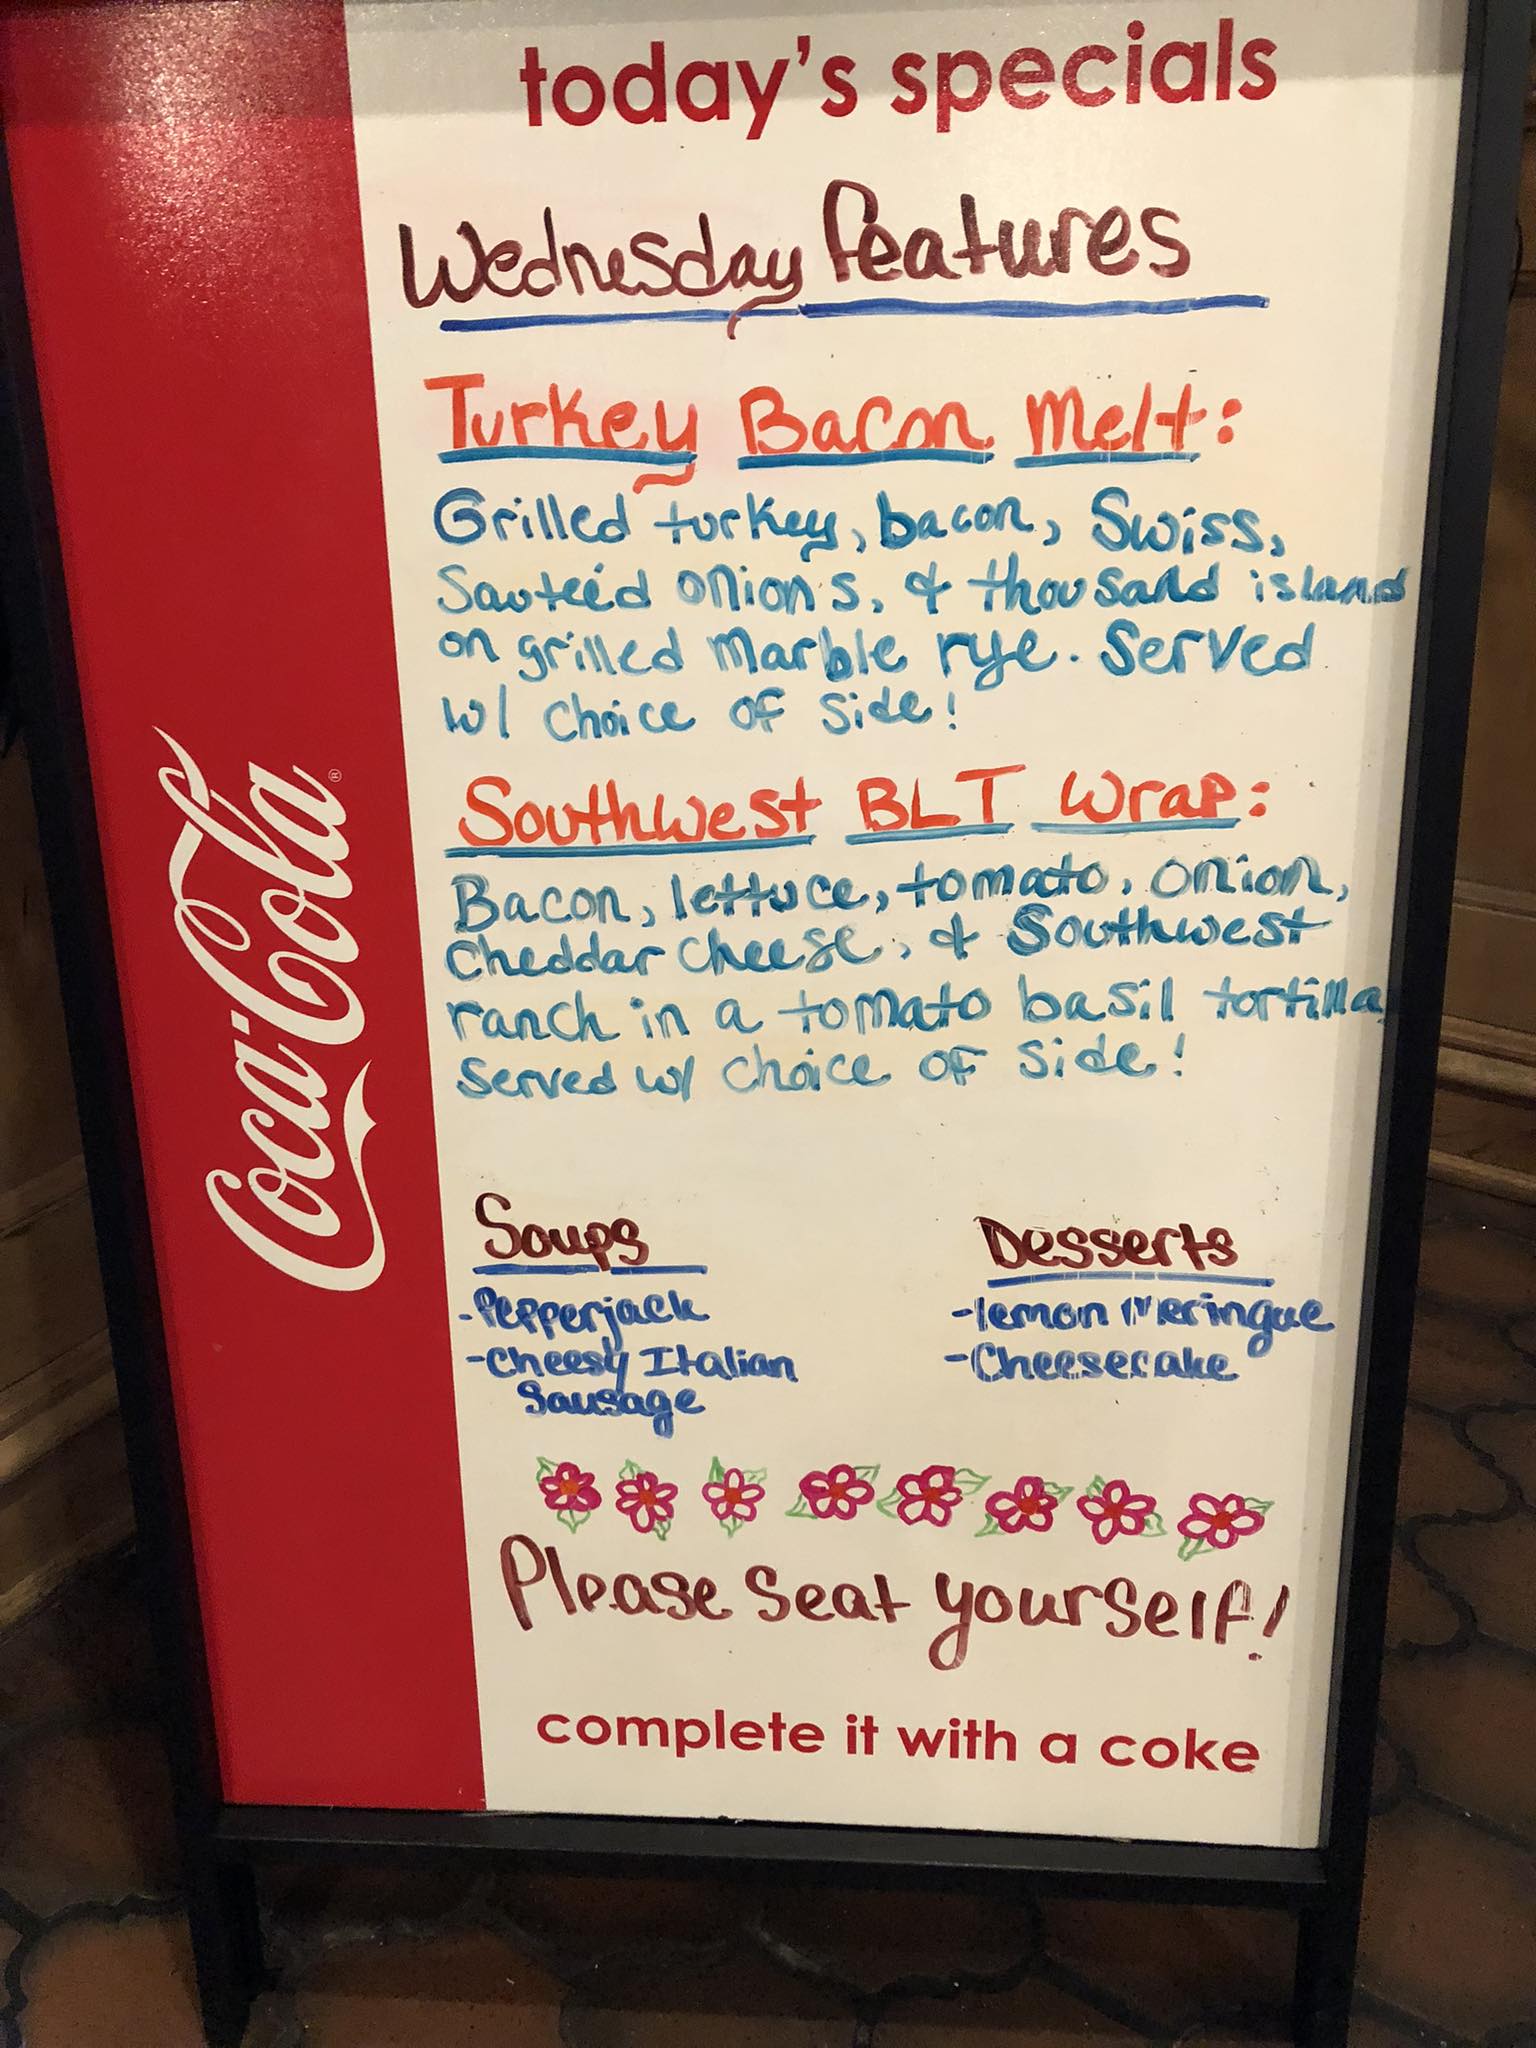 today's specials
Wednesday Features
Turkey Bacon Melt:
Grilled turkey, bacon, Swiss,
Sauteéd onions, & thousand island
on grilled marble rye. Served
w/ choice of side!
Southwest BLT Wrap:
Bacon, lettuce, tomato, onion,
Cheddar cheese, & Southwest
ranch in a tomato basil tortilla
Served w/ choice of side!
Soups
-Pepperjack
-Cheesy Italian
Sausage
Desserts
-lemon Meringue
-Cheesecake
Please seat yourself!
complete it with a coke
Coca-Cola®